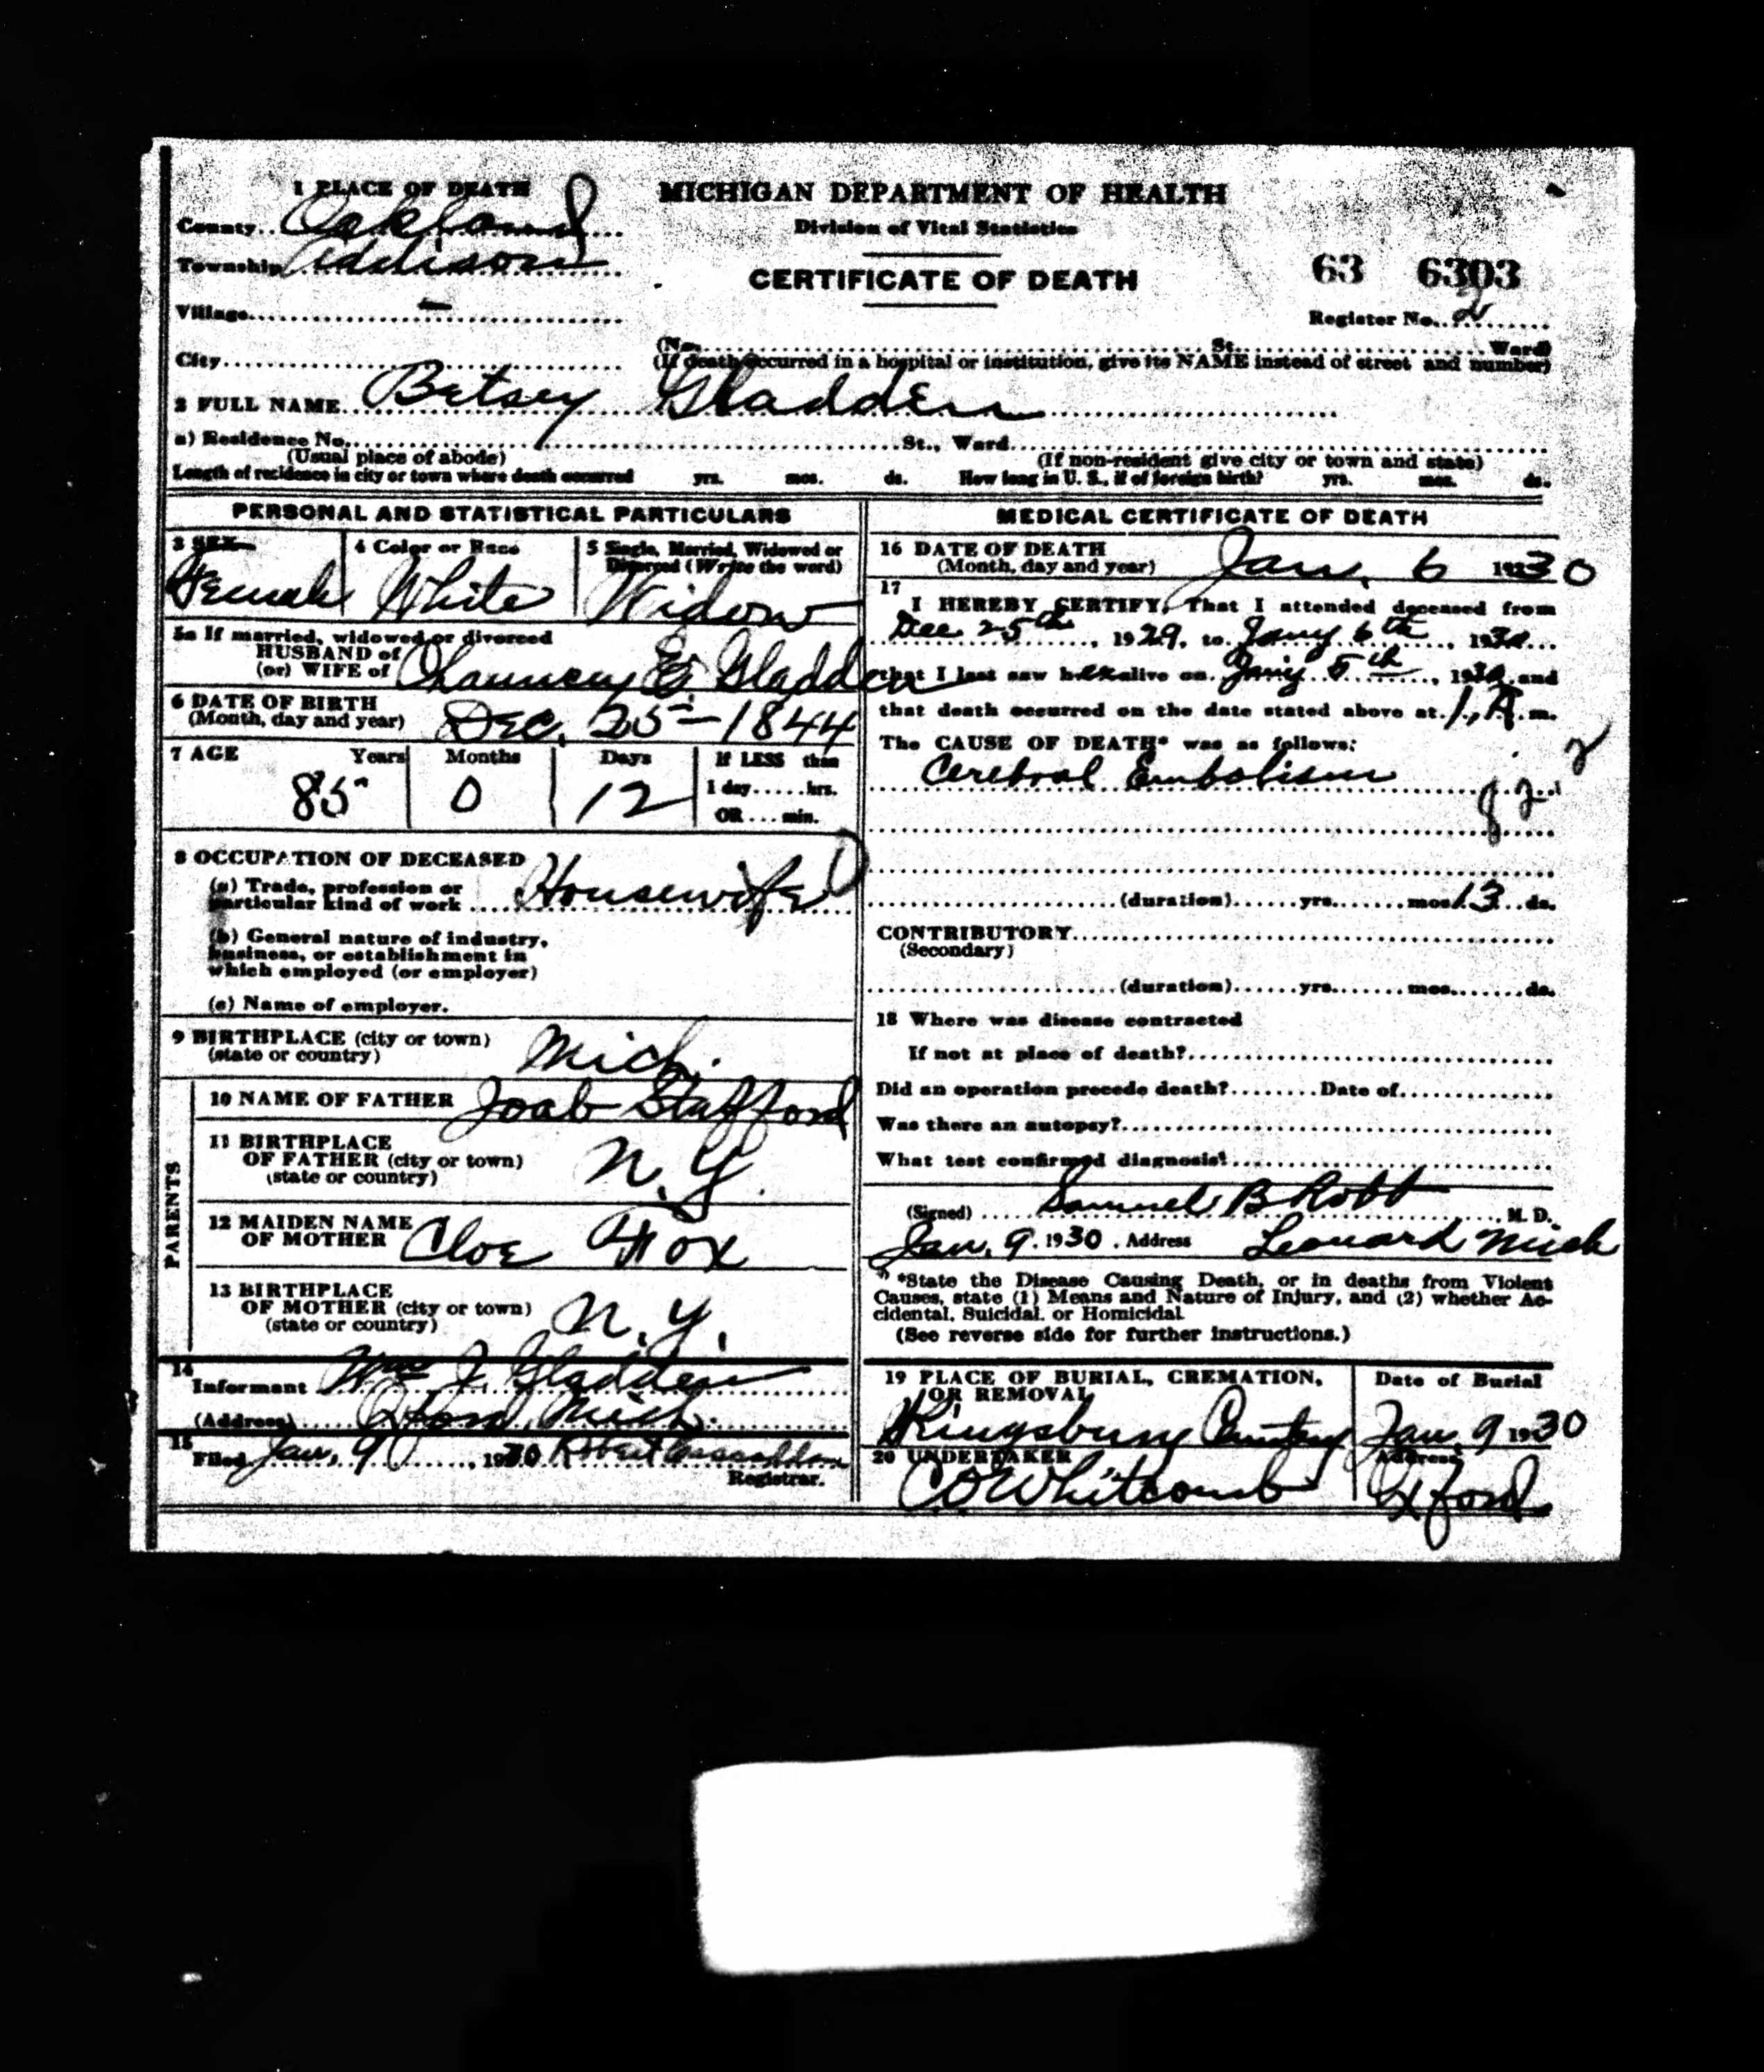 1 PLACE OF DEATH
MICHIGAN DEPARTMENT OF HEALTH
Division of Vital Statistics
CERTIFICATE OF DEATH
County Oakland
Township Addison
Village –
City
63 6303
Register No. 2
(No. St. Ward)
(If death occurred in a hospital or institution, give its NAME instead of street and number)
2 FULL NAME Betsey Gladden
a) Residence No. St., Ward
(Usual place of abode) (If non-resident give city or town and state)
Length of residence in city or town where death occurred yrs. mos. ds. How long in U. S., if of foreign birth? yrs. mos. ds.
PERSONAL AND STATISTICAL PARTICULARS
3 SEX 4 Color or Race 5 Single, Married, Widowed or
Divorced (Write the word)
Female White Widow
5a If married, widowed or divorced
HUSBAND of
(or) WIFE of Chauncey E. Gladden
6 DATE OF BIRTH
(Month, day and year) Dec. 25 – 1844
7 AGE Years Months Days If LESS than
85 0 12 1 day.....hrs.
OR...min.
8 OCCUPATION OF DECEASED
(a) Trade, profession or
particular kind of work Housewife
(b) General nature of industry,
business, or establishment in
which employed (or employer)
(c) Name of employer.
9 BIRTHPLACE (city or town)
(state or country) Mich.
PARENTS
10 NAME OF FATHER Joab Stafford
11 BIRTHPLACE
OF FATHER (city or town)
(state or country) N.Y.
12 MAIDEN NAME
OF MOTHER Cloe Fox
13 BIRTHPLACE
OF MOTHER (city or town)
(state or country) N.Y.
14
Informant Wm J. Gladden
(Address) Oxford, Mich.
15
Filed Jan. 9, 1930 Robert
Registrar.
MEDICAL CERTIFICATE OF DEATH
16 DATE OF DEATH
(Month, day and year) Jan. 6 1930
17
I HEREBY CERTIFY, That I attended deceased from
Dec 25th, 1929, to Jany 6th, 1930
that I last saw her alive on Jany 5th, 1930, and
that death occurred on the date stated above at 1, A. m.
The CAUSE OF DEATH* was as follows:
Cerebral Embolism
82
2
(duration) yrs. mos. 13 ds.
CONTRIBUTORY
(Secondary)
(duration) yrs. mos. ds.
18 Where was disease contracted
If not at place of death?
Did an operation precede death? Date of
Was there an autopsy?
What test confirmed diagnosis?
(Signed) Samuel B Robb M. D.
Jan. 9. 1930. Address Leonard Mich
*State the Disease Causing Death, or in deaths from Violent
Causes, state (1) Means and Nature of Injury, and (2) whether Ac-
cidental, Suicidal, or Homicidal
(See reverse side for further instructions.)
19 PLACE OF BURIAL, CREMATION,
OR REMOVAL
Kingsbury Cemetery
Date of Burial
Jan. 9 1930
20 UNDERTAKER
C O Whitcomb
Address
Oxford